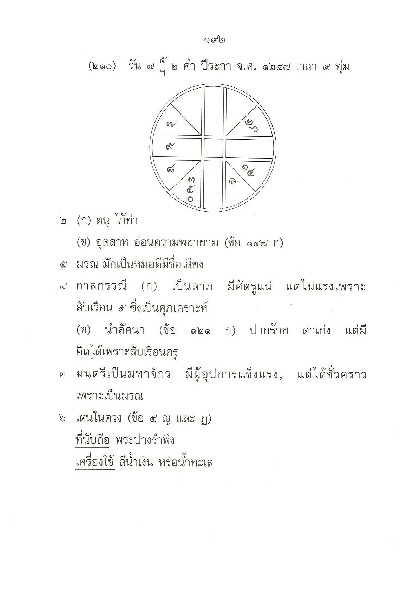 ๑๙๒
(๒๑๐) วัน ๗ ๒ ค่ำ ปีระกา จ.ศ. ๑๒๔๗ เวลา ๙ ทุ่ม
๒ (ก) ตนุ ไว้ท่า
(ข) อุตสาห อ่อนความพยายาม (ข้อ ๑๔๘ ก)
๕ มรณ มักเป็นหมอดีมีชื่อเสียง
๘ กาลกรรณี (ก) เป็นลาภ มีศัตรูแน่ แต่ไม่แรงเพราะ
สับเรือน ๕ ซึ่งเป็นศุภเคราะห์
(ข) นำลัคนา (ข้อ ๑๒๑ ก) ปากร้าย ตาเก่ง แต่มี
คิดได้เพราะสับเรือนครู
๓ มนตรีเป็นมหาจักร มีผู้อุปการแข็งแรง, แต่ได้ชั่วคราว
เพราะเป็นมรณ
๖ เด่นในดวง (ข้อ ๕ ญ และ ฎ)
ที่นับถือ พระปางรำพึง
เครื่องใช้ สีน้ำเงิน หรือน้ำทะเล